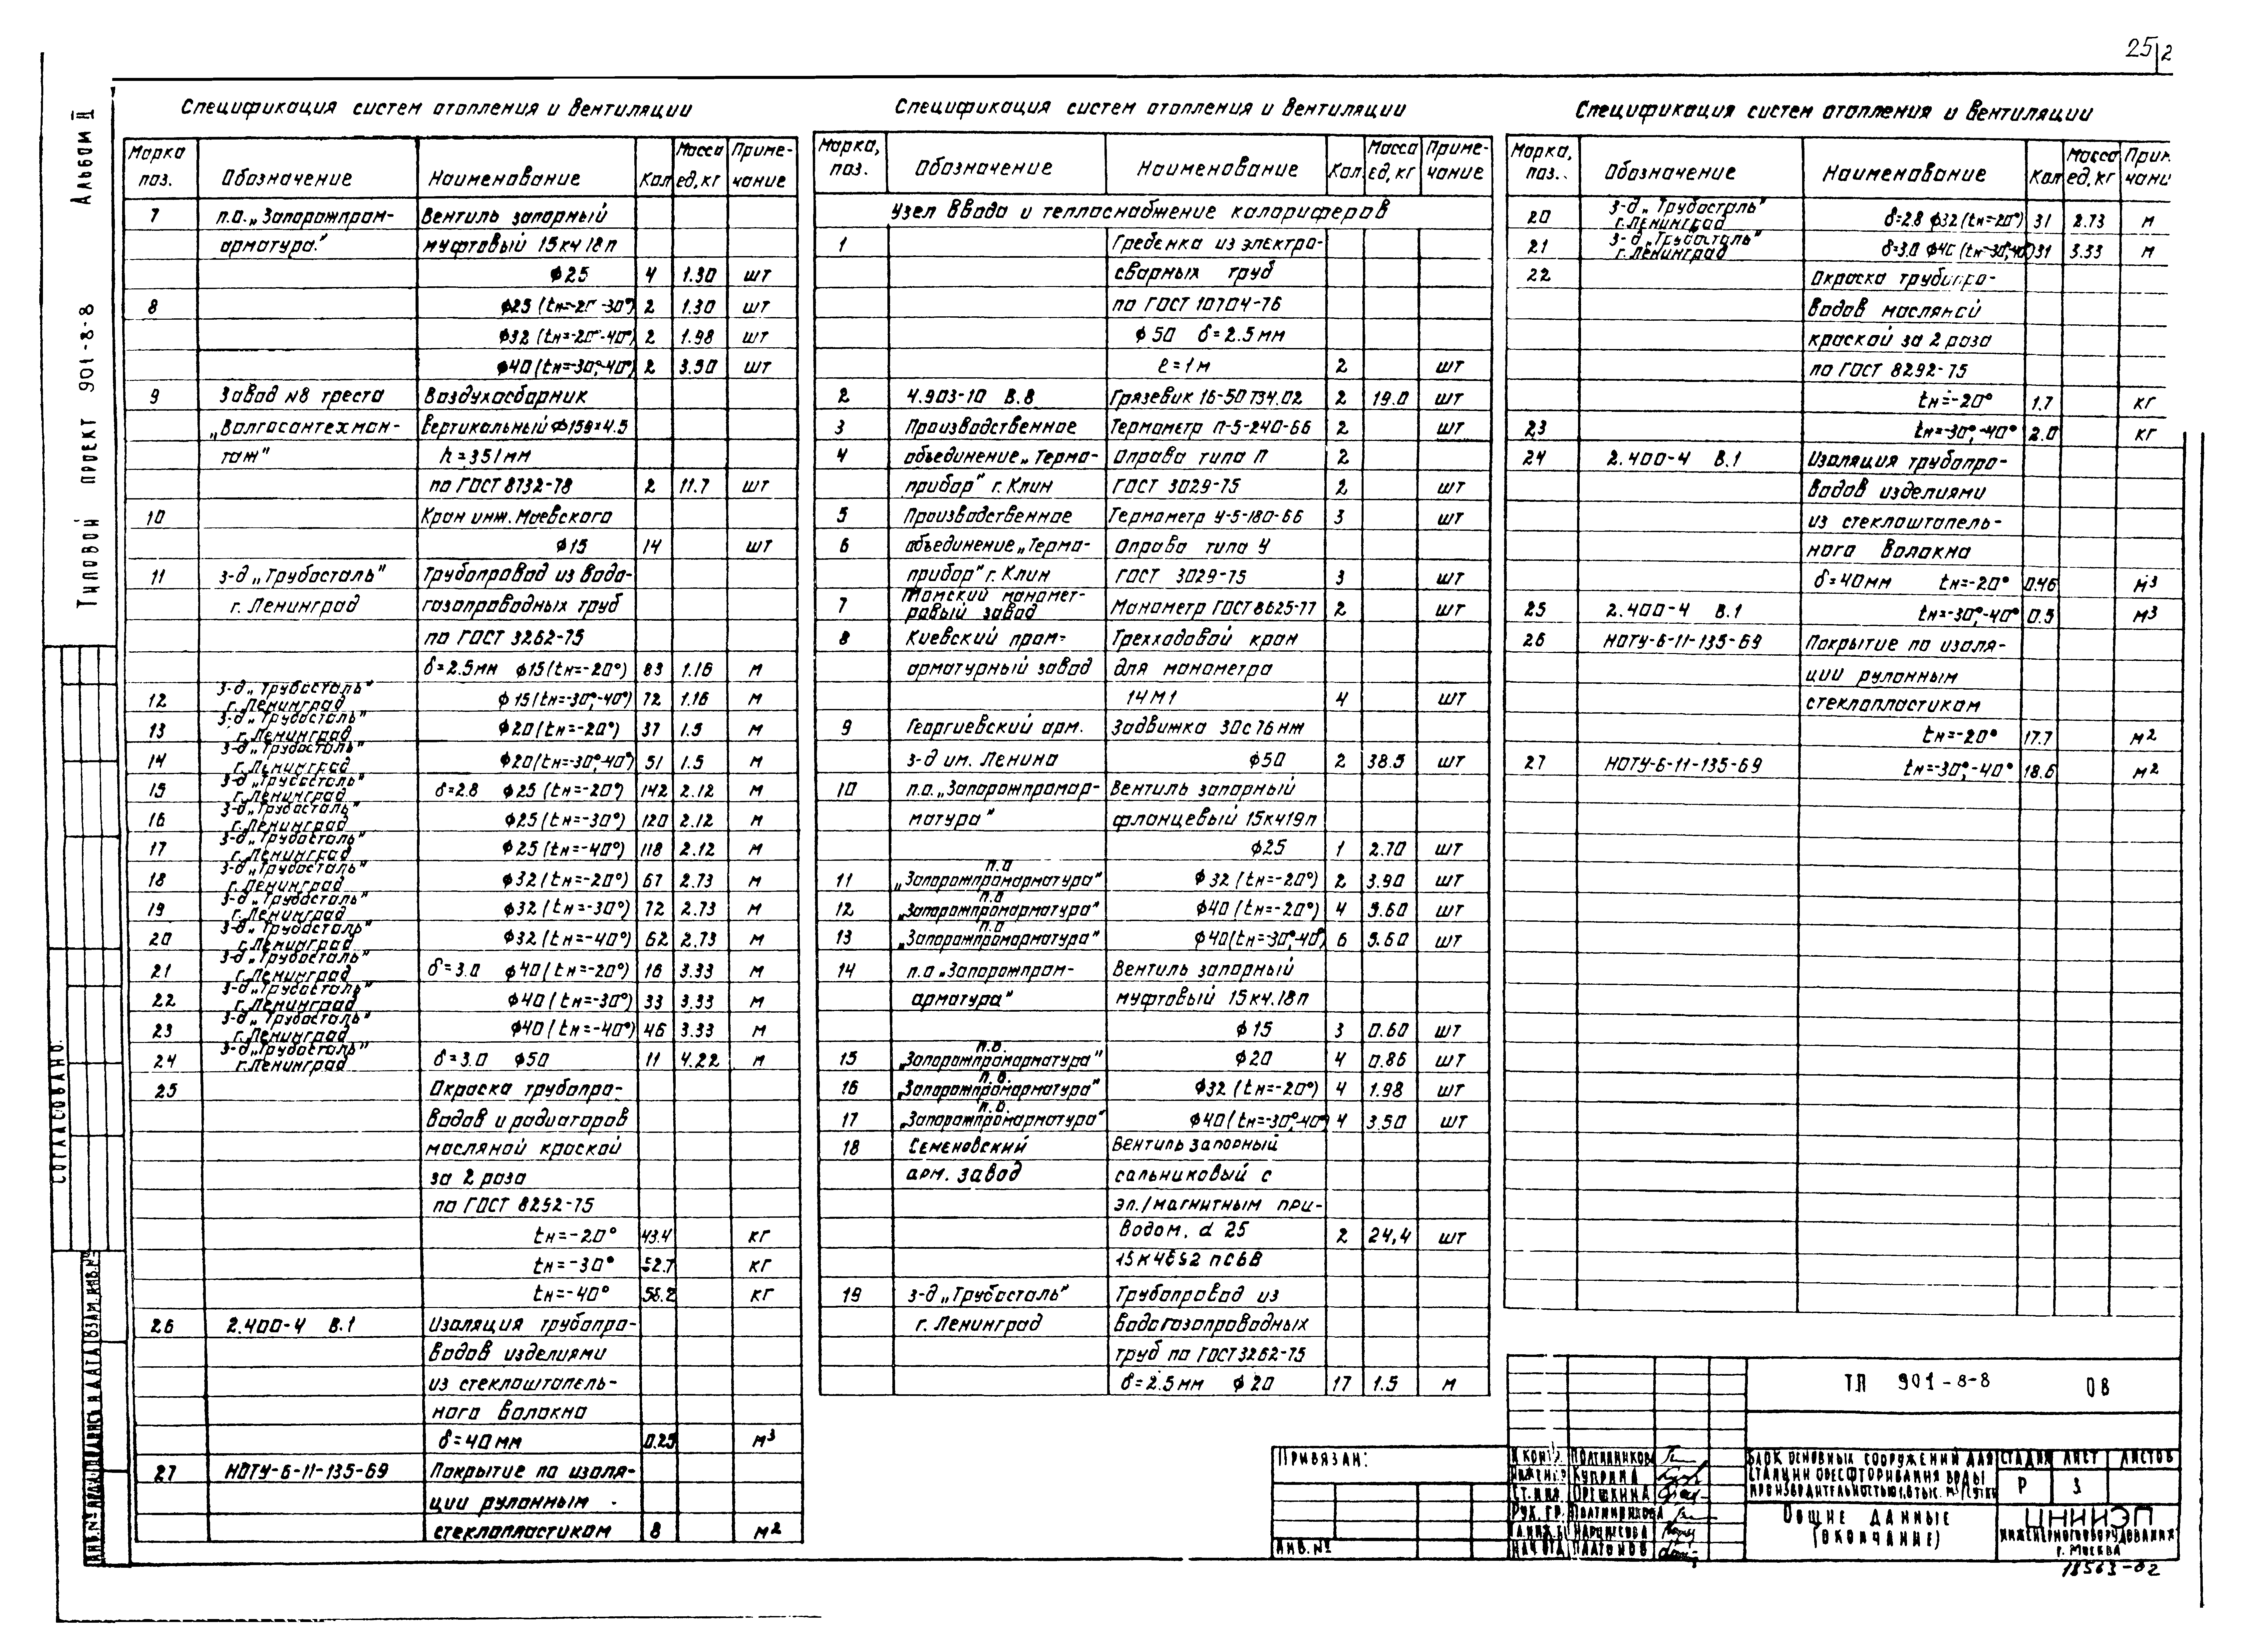 25/2
Альбом II
Типовой проект 901-8-8
Согласовано:
Спецификация систем отопления и вентиляции
Марка поз. Обозначение Наименование Кол Масса ед, кг Примечание
7 п.о. „Запорожпром- Вентиль запорный
арматура." муфтовый 15кч 18п
ф25 4 1.30 шт
8 ф25 (tн=-20°-30°) 2 1.30 шт
ф32 (tн=-20°-40°) 2 1.98 шт
ф40 (tн=-30°,-40°) 2 3.50 шт
9 Завод №8 треста Воздухосборник
„Волгосантехмон- вертикальный ф159×4.5
таж" h=351мм
по ГОСТ 8732-78 2 11.7 шт
10 Кран инж. Маевского
ф15 14 шт
11 з-д „Трубосталь" Трубопровод из водо-
г. Ленинград газопроводных труб
по ГОСТ 3262-75
δ=2.5мм ф15(tн=-20°) 83 1.16 м
12 з-д „Трубосталь" г. Ленинград ф15(tн=-30°,-40°) 72 1.16 м
13 з-д „Трубосталь" г. Ленинград ф20(tн=-20°) 37 1.5 м
14 з-д „Трубосталь" г. Ленинград ф20(tн=-30°,-40°) 51 1.5 м
15 з-д „Трубосталь" г. Ленинград δ=2.8 ф25 (tн=-20°) 142 2.12 м
16 з-д „Трубосталь" г. Ленинград ф25 (tн=-30°) 120 2.12 м
17 з-д „Трубосталь" г. Ленинград ф25 (tн=-40°) 118 2.12 м
18 з-д „Трубосталь" г. Ленинград ф32 (tн=-20°) 67 2.73 м
19 з-д „Трубосталь" г. Ленинград ф32 (tн=-30°) 72 2.73 м
20 з-д „Трубосталь" г. Ленинград ф32 (tн=-40°) 62 2.73 м
21 з-д „Трубосталь" г. Ленинград δ=3.0 ф40 (tн=-20°) 16 3.33 м
22 з-д „Трубосталь" г. Ленинград ф40 (tн=-30°) 33 3.33 м
23 з-д „Трубосталь" г. Ленинград ф40 (tн=-40°) 46 3.33 м
24 з-д „Трубосталь" г. Ленинград δ=3.0 ф50 11 4.22 м
25 Окраска трубопро-
водов и радиаторов
масляной краской
за 2 раза
по ГОСТ 8292-75
tн=-20° 43.4 кг
tн=-30° 52.7 кг
tн=-40° 56.2 кг
26 2.400-4 В.1 Изоляция трубопро-
водов изделиями
из стеклоштапель-
ного волокна
δ=40мм 0.25 м³
27 НОТУ-6-11-135-69 Покрытие по изоля-
ции рулонным
стеклопластиком 8 м²
Спецификация систем отопления и вентиляции
Марка, поз. Обозначение Наименование Кол. Масса ед, кг Примечание
Узел ввода и теплоснабжение калориферов
1 Гребенка из электро-
сварных труб
по ГОСТ 10704-76
ф50 δ=2.5мм
ℓ=1м 2 шт
2 4.903-10 В.8 Грязевик 16-50 Т34.02 2 19.0 шт
3 Производственное Термометр П-5-240-66 2 шт
4 объединение „Термо- Оправа типа П 2
прибор" г. Клин ГОСТ 3029-75 2 шт
5 Производственное Термометр У-5-180-66 3 шт
6 объединение „Термо- Оправа типа У
прибор" г. Клин ГОСТ 3029-75 3 шт
7 Томский маномет- ровый завод Манометр ГОСТ 8625-77 2 шт
8 Киевский пром- Трехходовой кран
арматурный завод для манометра
14М1 4 шт
9 Георгиевский арм. Задвижка 30с76нж
з-д им. Ленина ф50 2 38.5 шт
10 п.о. „Запорожпромар- Вентиль запорный
матура" фланцевый 15кч19п
ф25 1 2.70 шт
11 п.о „Запорожпромарматура" ф32 (tн=-20°) 2 3.90 шт
12 п.о „Запорожпромарматура" ф40 (tн=-20°) 4 5.60 шт
13 п.о „Запорожпромарматура" ф40(tн=-30°,-40°) 6 5.60 шт
14 п.о „Запорожпром- Вентиль запорный
арматура" муфтовый 15кч.18п
ф15 3 0.60 шт
15 п.о. „Запорожпромарматура" ф20 4 0.86 шт
16 п.о. „Запорожпромарматура" ф32 (tн=-20°) 4 1.98 шт
17 п.о. „Запорожпромарматура" ф40(tн=-30°,-40°) 4 3.50 шт
18 Семеновский Вентиль запорный
арм. завод сальниковый с
эл./магнитным при-
водом, d 25 2 24,4 шт
19 з-д „Трубосталь" Трубопровод из
г. Ленинград водогазопроводных
труб по ГОСТ 3262-75
δ=2.5мм ф20 17 1.5 м
Спецификация систем отопления и вентиляции
Марка, поз. Обозначение Наименование Кол Масса ед, кг
20 з-д „Трубосталь" г. Ленинград δ=2.8 ф32(tн=-20°) 31 2.73 м
21 з-д „Трубосталь" г. Ленинград δ=3.0 ф40 (tн=-30°,-40°) 31 3.33 м
22 Окраска трубопро-
водов масляной
краской за 2 раза
по ГОСТ 8292-75
tн=-20° 1.7 кг
23 tн=-30°,-40° 2.0 кг
24 2.400-4 В.1 Изоляция трубопро-
водов изделиями
из стеклоштапель-
ного волокна
δ=40мм tн=-20° 0.46 м³
25 2.400-4 В.1 tн=-30°,-40° 0.5 м³
26 НОТУ-6-11-135-69 Покрытие по изоля-
ции рулонным
стеклопластиком
tн=-20° 17.7 м²
27 НОТУ-6-11-135-69 tн=-30°,-40° 18.6 м²
Привязан:
Инв.№
ТП 901-8-8 ОВ
Куприна
Ст.инж. Орешкина
Рук. гр.
Нач отд Платонов
Блок основных сооружений для
станции обесфторивания воды
Общие данные
(окончание)
Стадия Лист Листов
Р 3
ЦНИИЭП
инженерного оборудования
г. Москва
18563-02